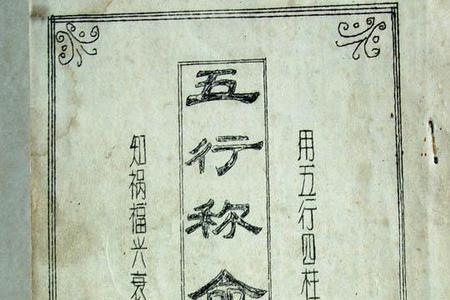 用五行四柱
五行称命
知祸福兴衰